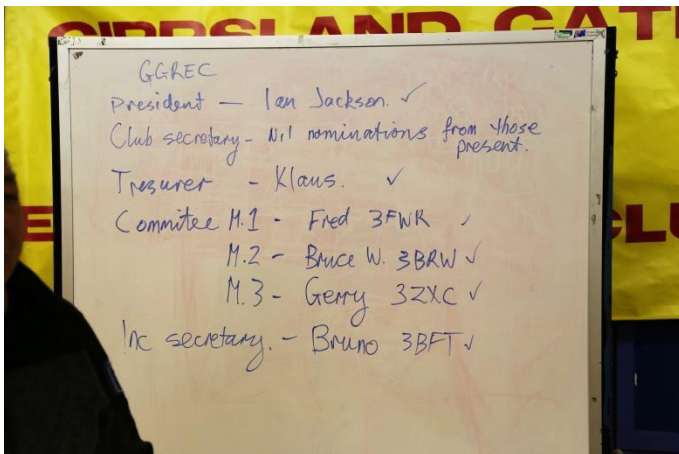 GIPPSLAND GAT
GGREC
President – Ian Jackson. ✓
Club secretary – Nil nominations from those
present.
Tresurer – Klaus. ✓
Commitee M.1 – Fred 3FWR ✓
M.2 – Bruce W. 3BRW ✓
M.3 – Gerry 3ZXC ✓
Inc secretary. – Bruno 3BFT ✓
E
CLU